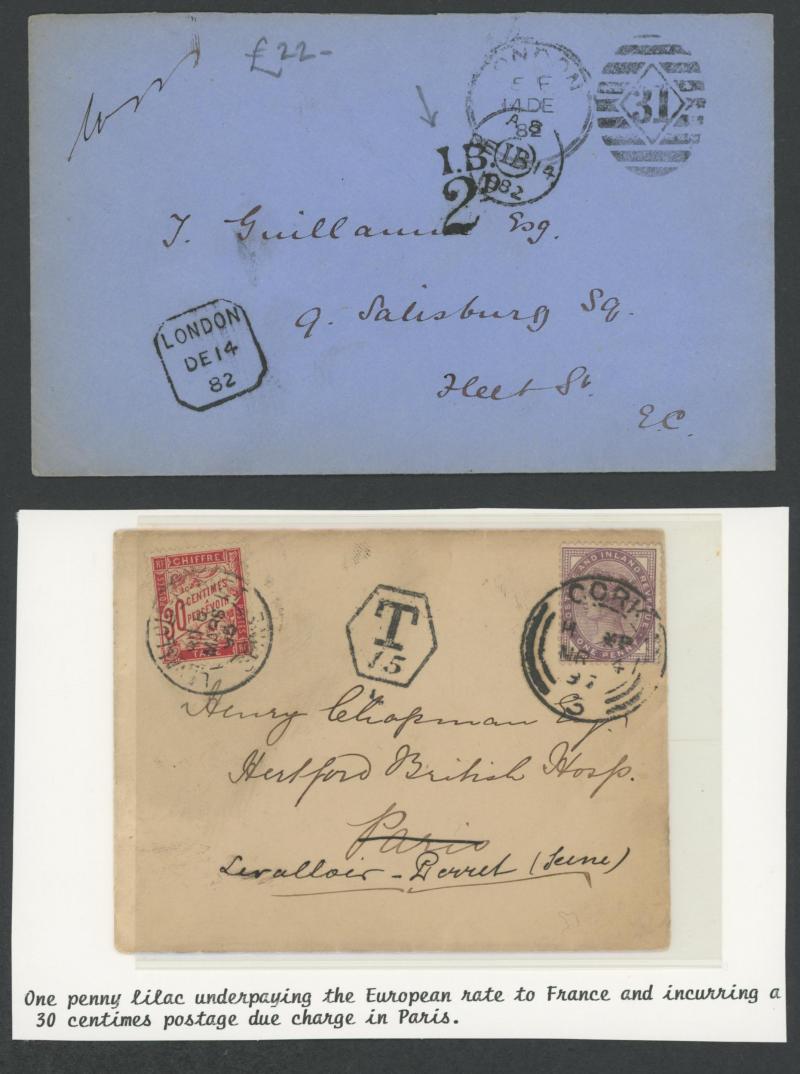 £22-
LONDON
14 DE
82
31
I.B.
2D
I.B.
DE 14
82
J. Guillaume Esq.
9. Salisbury Sq.
Fleet St.
E.C.
LONDON
DE 14
82
CHIFFRE
30
CENTIMES
PERCEVOIR
T
15
POSTAGE AND INLAND REVENUE
ONE PENNY
CORK
97
Henry Chapman Esq.
Hertford British Hosp.
Paris
Levallois-Perret (Seine)
One penny lilac underpaying the European rate to France and incurring a
30 centimes postage due charge in Paris.